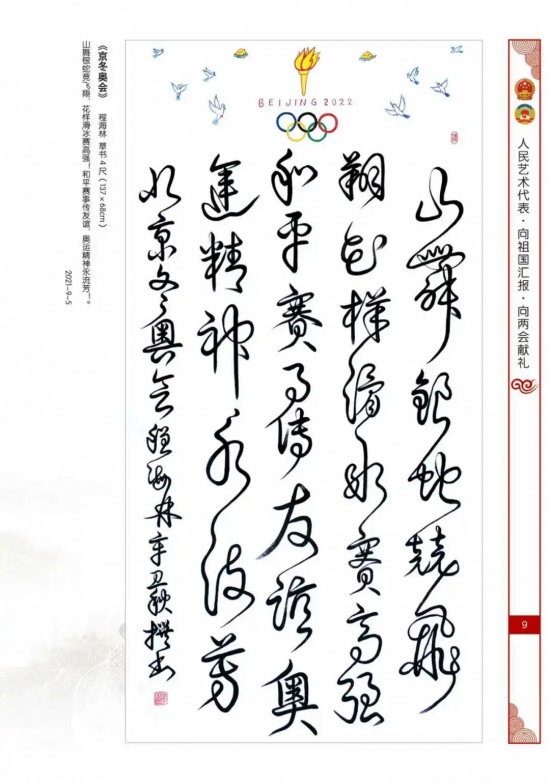 人民艺术代表·向祖国汇报·向两会献礼
9
BEIJING 2022
山舞銀蛇競飛
翔花樣滑冰賽高强
和平賽事傳友誼奥
運精神永流芳
北京冬奥会程海林辛丑秋撰书
《京冬奥会》 程海林 草书4尺(137×68cm)
山舞银蛇竞飞翔,花样滑冰赛高强!和平赛事传友谊,奥运精神永流芳!。
2021-9-5